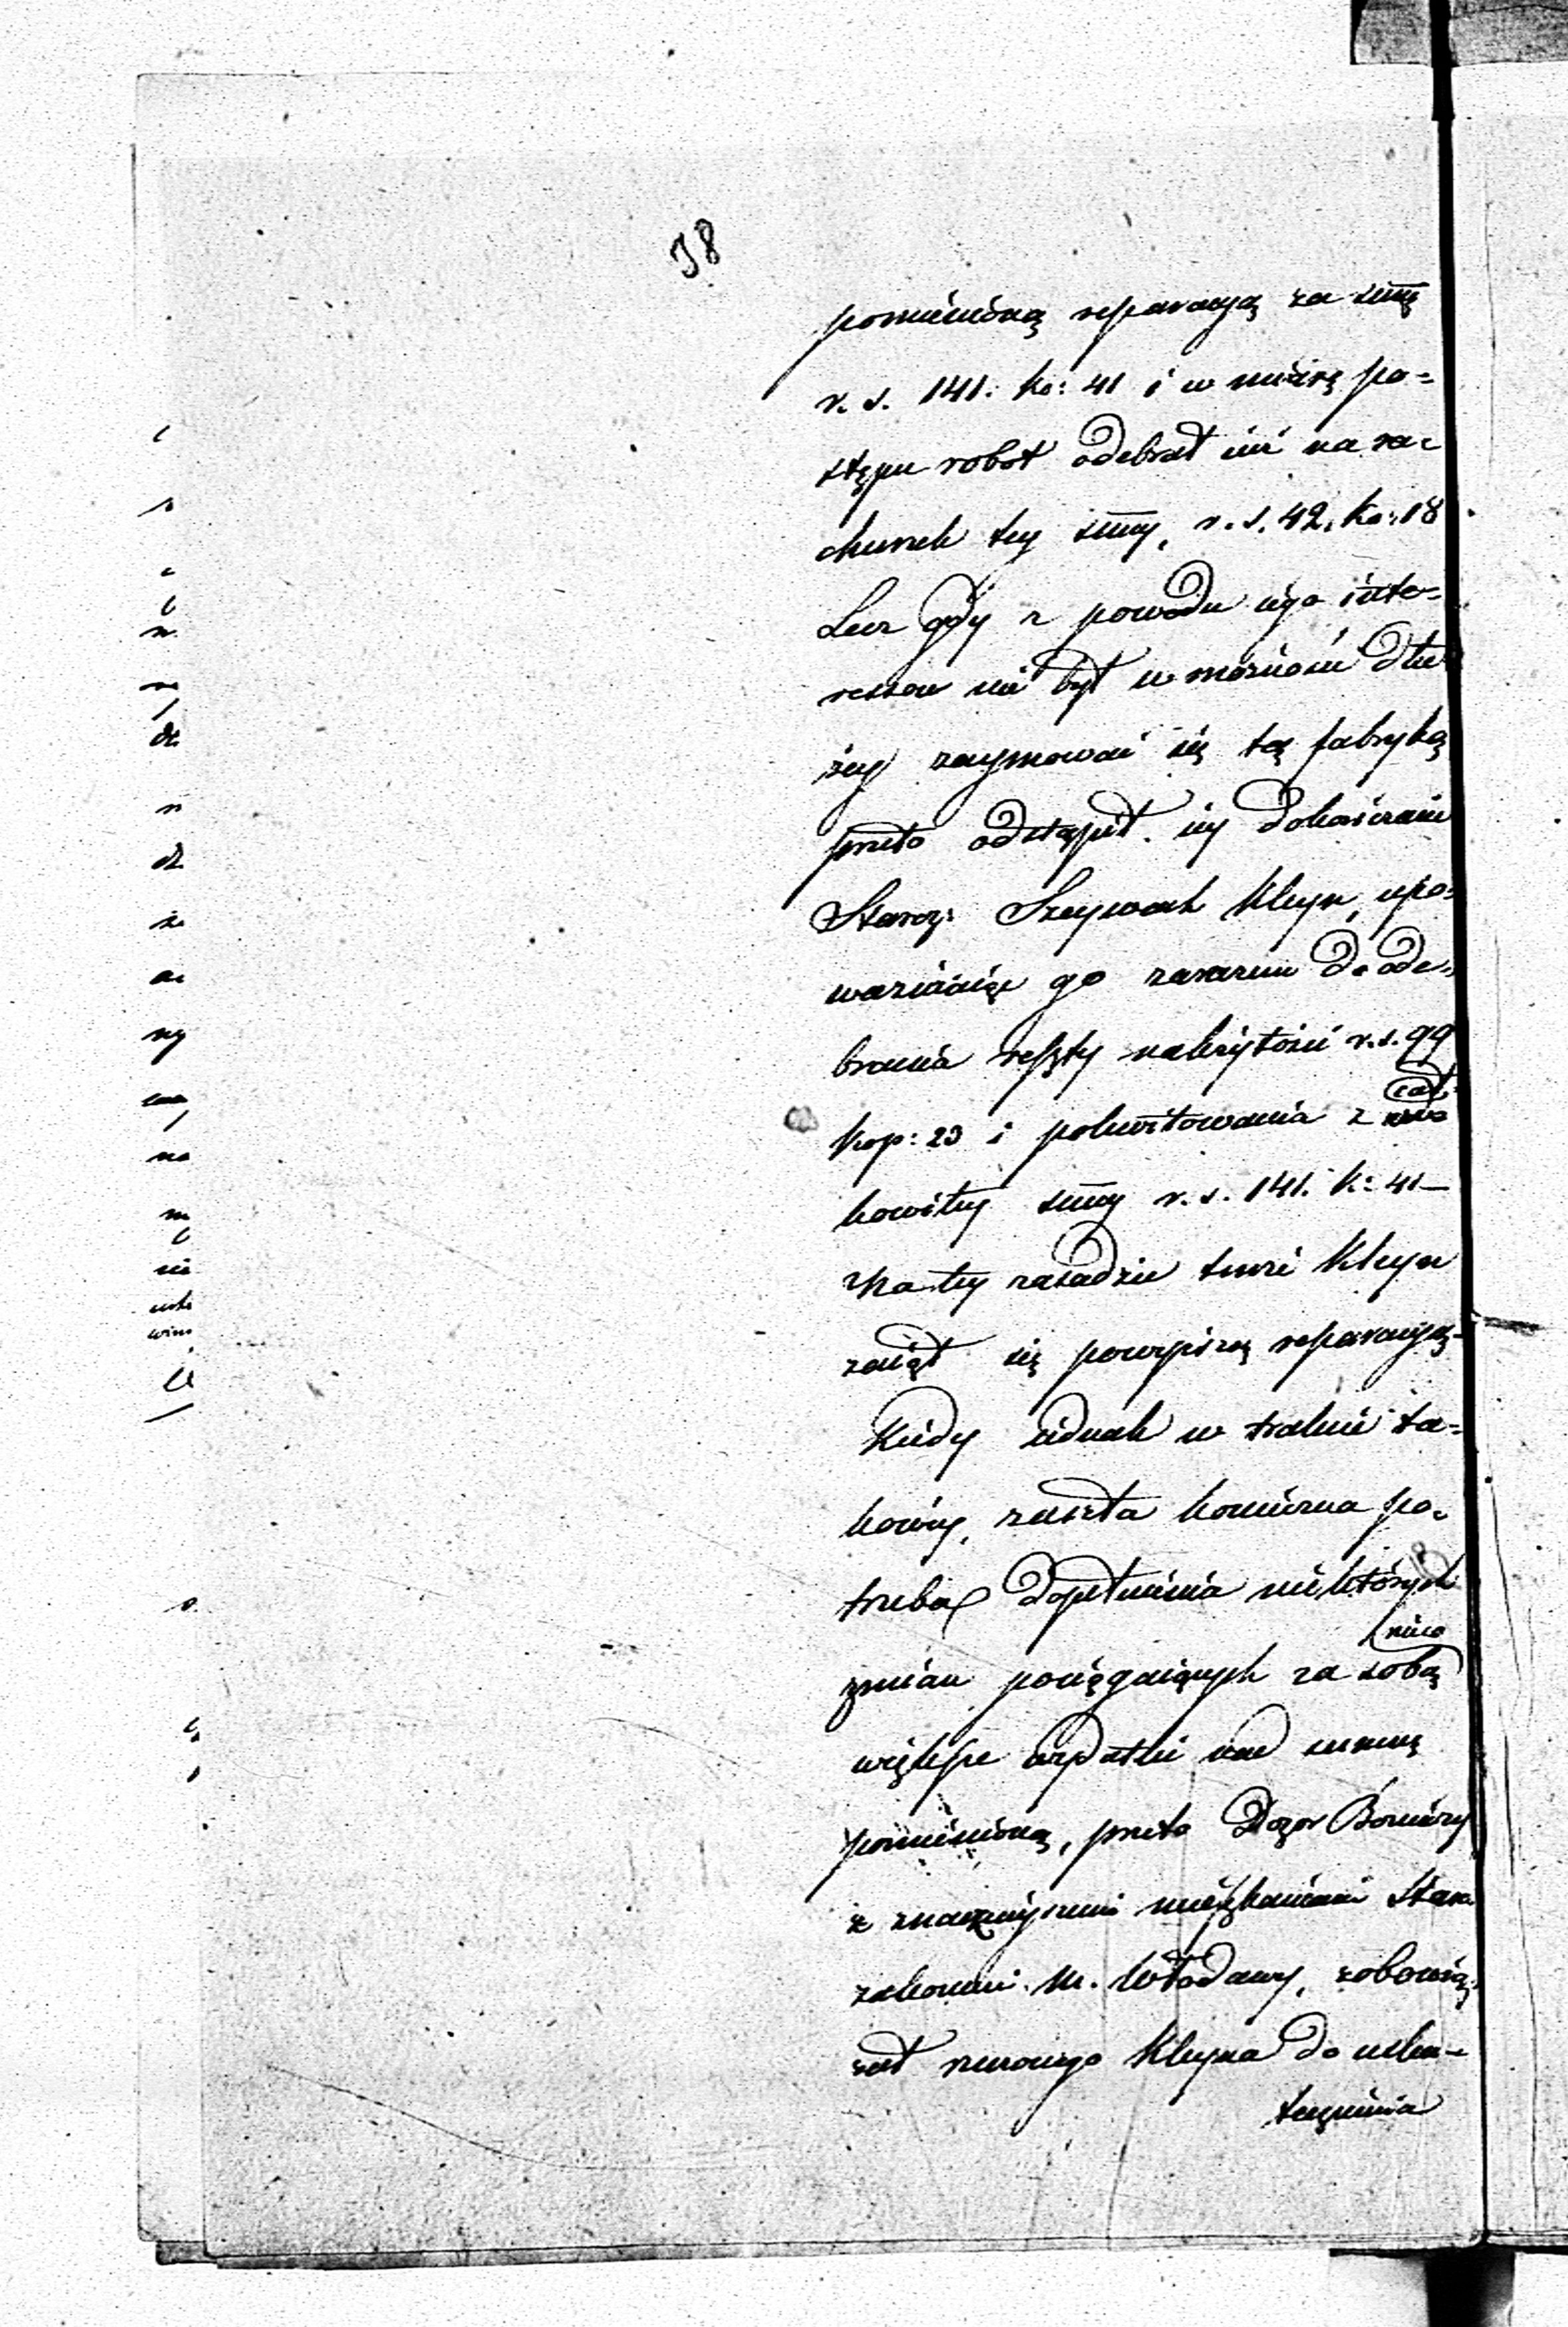 38
pomienioną reparacyą za sum̄ę
r. s. 141. ko: 41 i w miarę po=
stępu robot odebrał już na ra=
chunek tey sum̄y, r. s. 42. ko: 18
Lecz gdy z powodu iego inte=
ressow nie był w możności dłu
żey zaymować się tą fabryką
przeto odstąpił iey dokończenie
Staroz: Szeywach Kleyn, upo=
ważniaiąc go zarazem do ode=
brania reszty należytości r. s. 99
kop: 23 i pokwitowania z cał=
kowitey sum̄y r. s. 141. k: 41
Na tey zasadzie tenże Kleyn
zaiął się powyższą reparacyą
Kiedy iednak w trakcie ta=
kowey, zaszła konieczna po=
trzeba dopełnienia niektórych
nieco
zmian pociągaiących za sobą
większe wydatki nad summę
pomienioną, przeto Dozor Bożniczy
z znacznieyszemi mieszkańcami Staro
zakonnemi m. Włodawy, zobowią
zał rzeczonego Kleyna do usku=
tecznienia